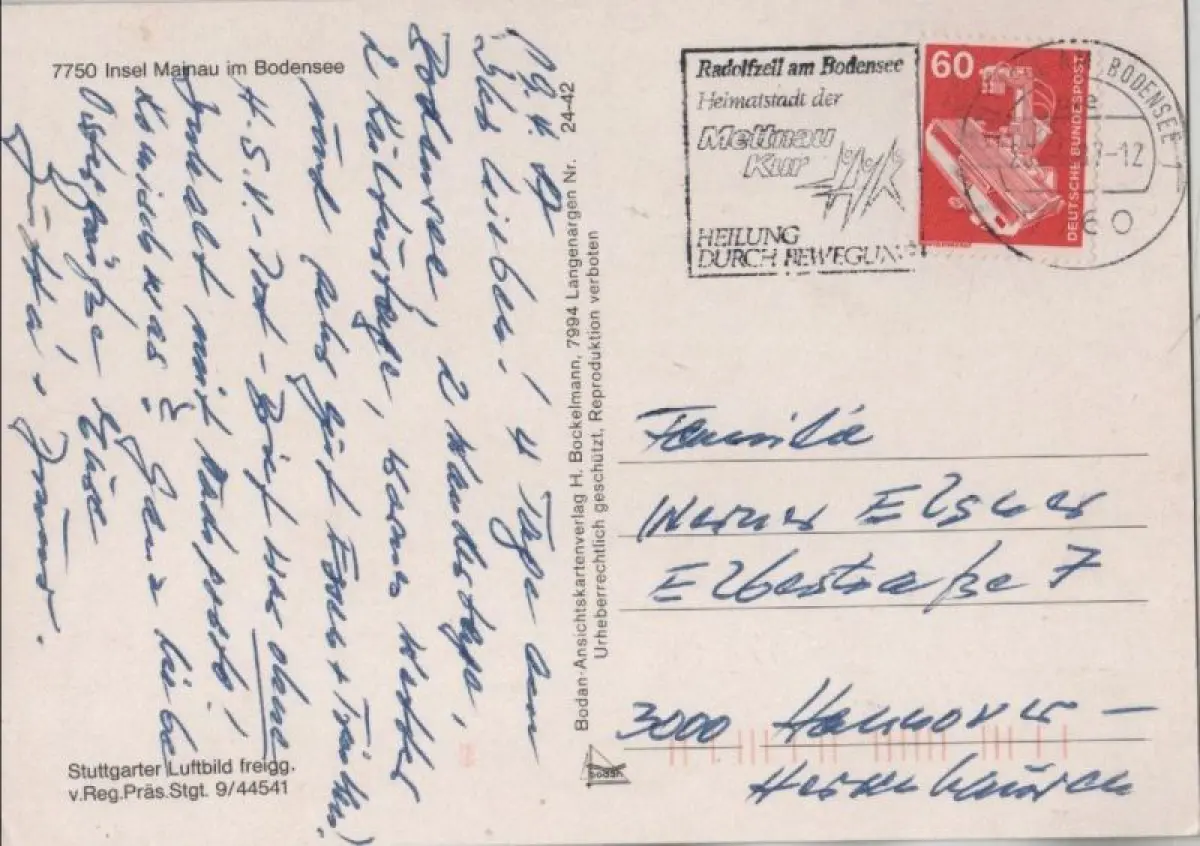 7750 Insel Mainau im Bodensee
Ihr Lieben! 4 Tage am
Bodensee, 2 Wandertage,
2 Kulturtage, warmes Wetter
und sehr gut Essen + Trinken!
H.S.V.- Brief hier ohne
Inhalt mit Radpost!
Komisch was? Ganz liebe
Ostergrüße Eure
Jutta
Stuttgarter Luftbild freigg.
v.Reg.Präs.Stgt. 9/44541
Bodan-Ansichtskartenverlag H. Bockelmann, 7994 Langenargen Nr. 24-42
Urheberrechtlich geschützt, Reproduktion verboten
bodan
Radolfzell am Bodensee
Heimatstadt der
Mettnau
Kur
HEILUNG
DURCH BEWEGUNG
60
DEUTSCHE BUNDESPOST
BODENSEE 1
-12
Familie
Werner Elsner
Elbestraße 7
3000 Hannover –
Herrenhausen